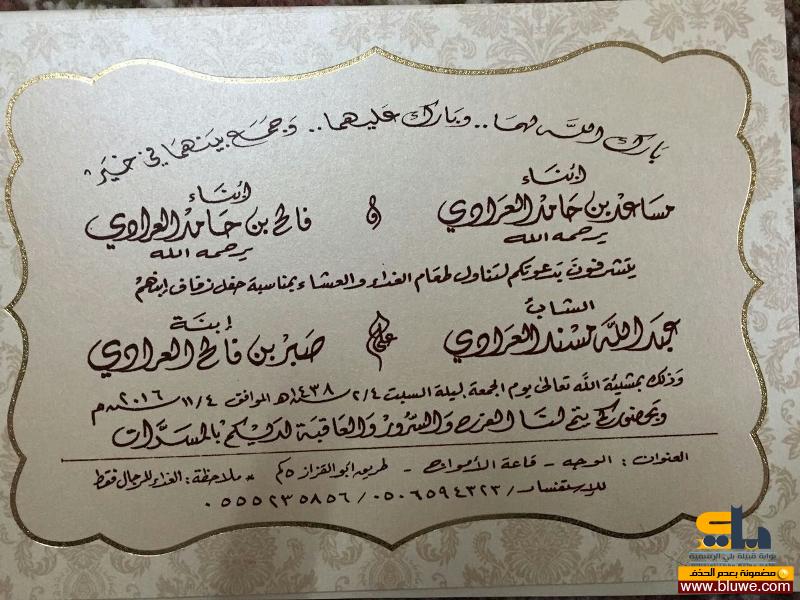 بارك الله لهما.. وبارك عليهما.. وجمع بينهما في خير"
أبناء أبناء
مساعد بن حامد العرادي و فالح بن حامد العرادي
يرحمه الله يرحمه الله
يتشرفون بدعوتكم لتناول طعام الغداء والعشاء بمناسبة حفل زفاف إبنهم
الشاب إبنة
عبدالله مسند العرادي على صبر بن فالح العرادي
وذلك بمشيئة الله تعالى يوم الجمعة ليلة السبت ٢/٤/١٤٣٨هـ الموافق ١١/٤/٢٠١٦م
وبحضوركم يتم لنا العزة والسرور والعاقبة لديكم بالمسرات
العنوان: الوجه - قاعة الأمواج - طريق ابو القزاز ٥كم * ملاحظة: الغداء للرجال فقط
للإستفسار/ ٠٥٠٦٥٩٤٣٢٣ / ٠٥٥٥٢٣٥٨٥٦
بلي
بوابة قبيلة بلي الرسمية
مضمونة بعدم الحذف
www.bluwe.com